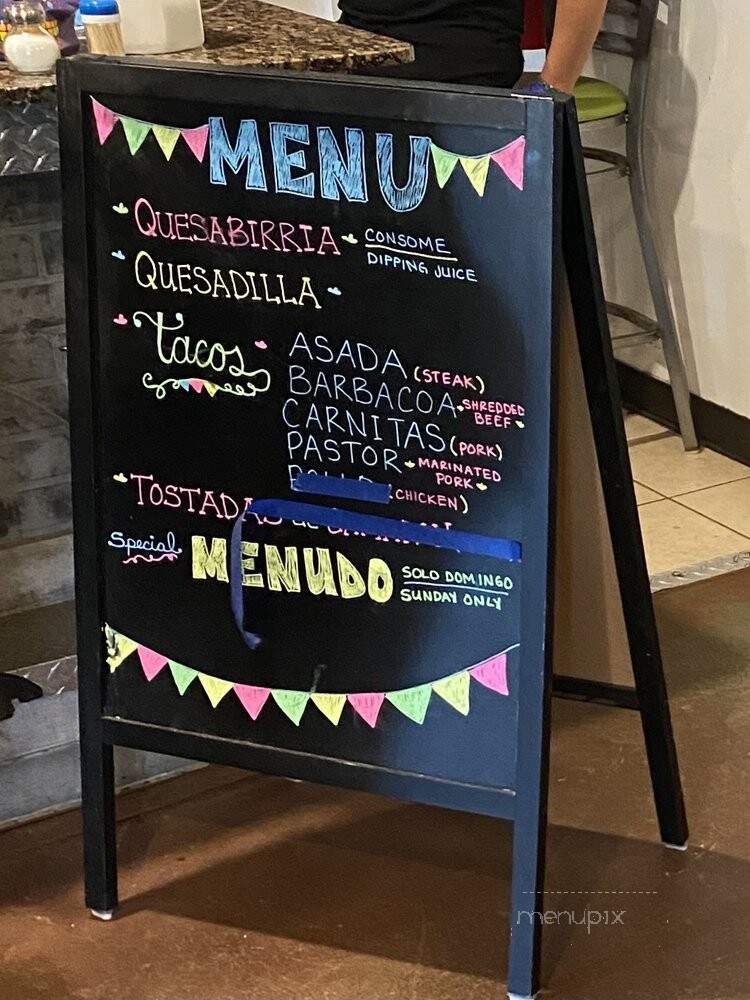 MENU
QUESABIRRIA CONSOME
DIPPING JUICE
QUESADILLA
Tacos
ASADA (STEAK)
BARBACOA SHREDDED
BEEF
CARNITAS (PORK)
PASTOR MARINATED
PORK
(CHICKEN)
TOSTADAS de
Special MENUDO SOLO DOMINGO
SUNDAY ONLY
menupix